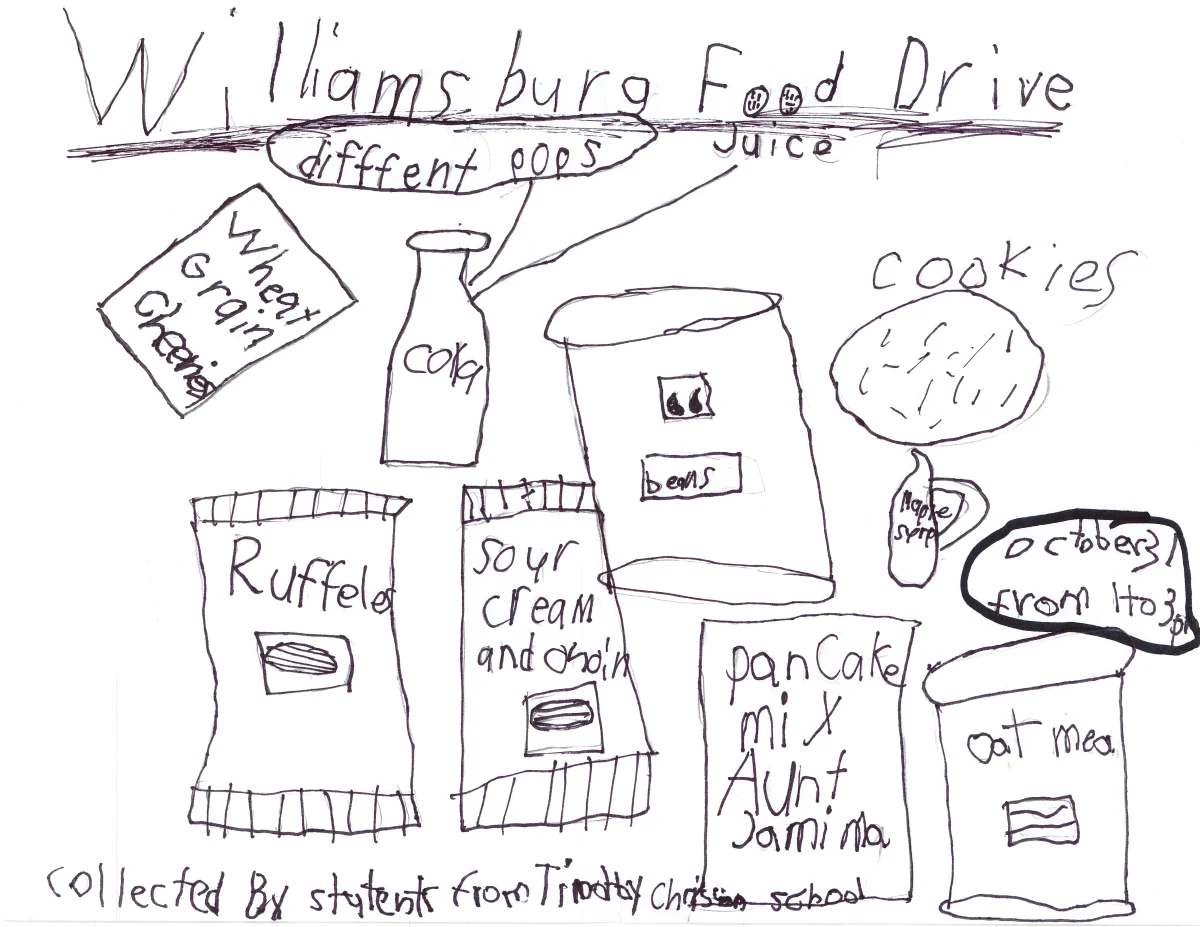 Williamsburg Food Drive
difffent pops
Juice
Wheat
Grain
Cheerios
Colla
cookies
beans
Maple
syrp
October 31
from 1to3pm
Ruffeles
sour
cream
and onoin
pancake
mix
Aunt
Jamima
oat mea
collected By stytents from Timothy Christian school